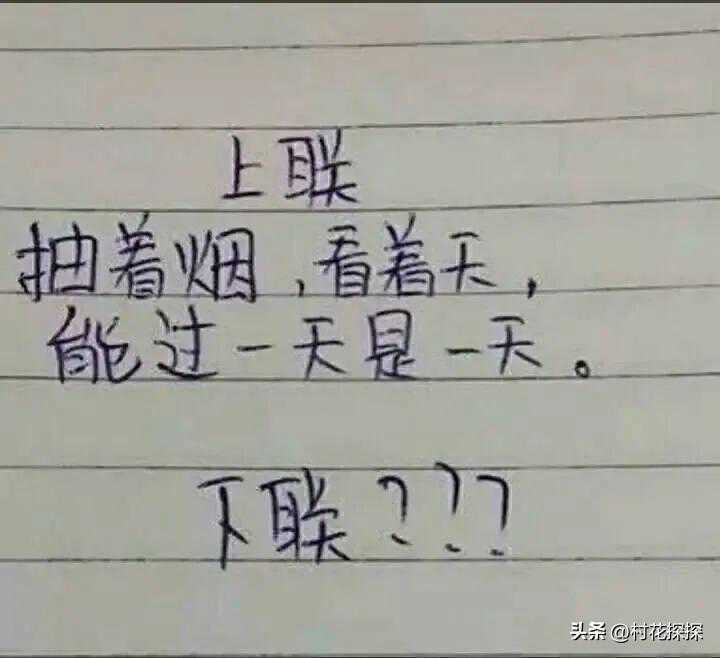 上联
抽着烟，看着天，
能过一天是一天。
下联???
头条 @村花探探